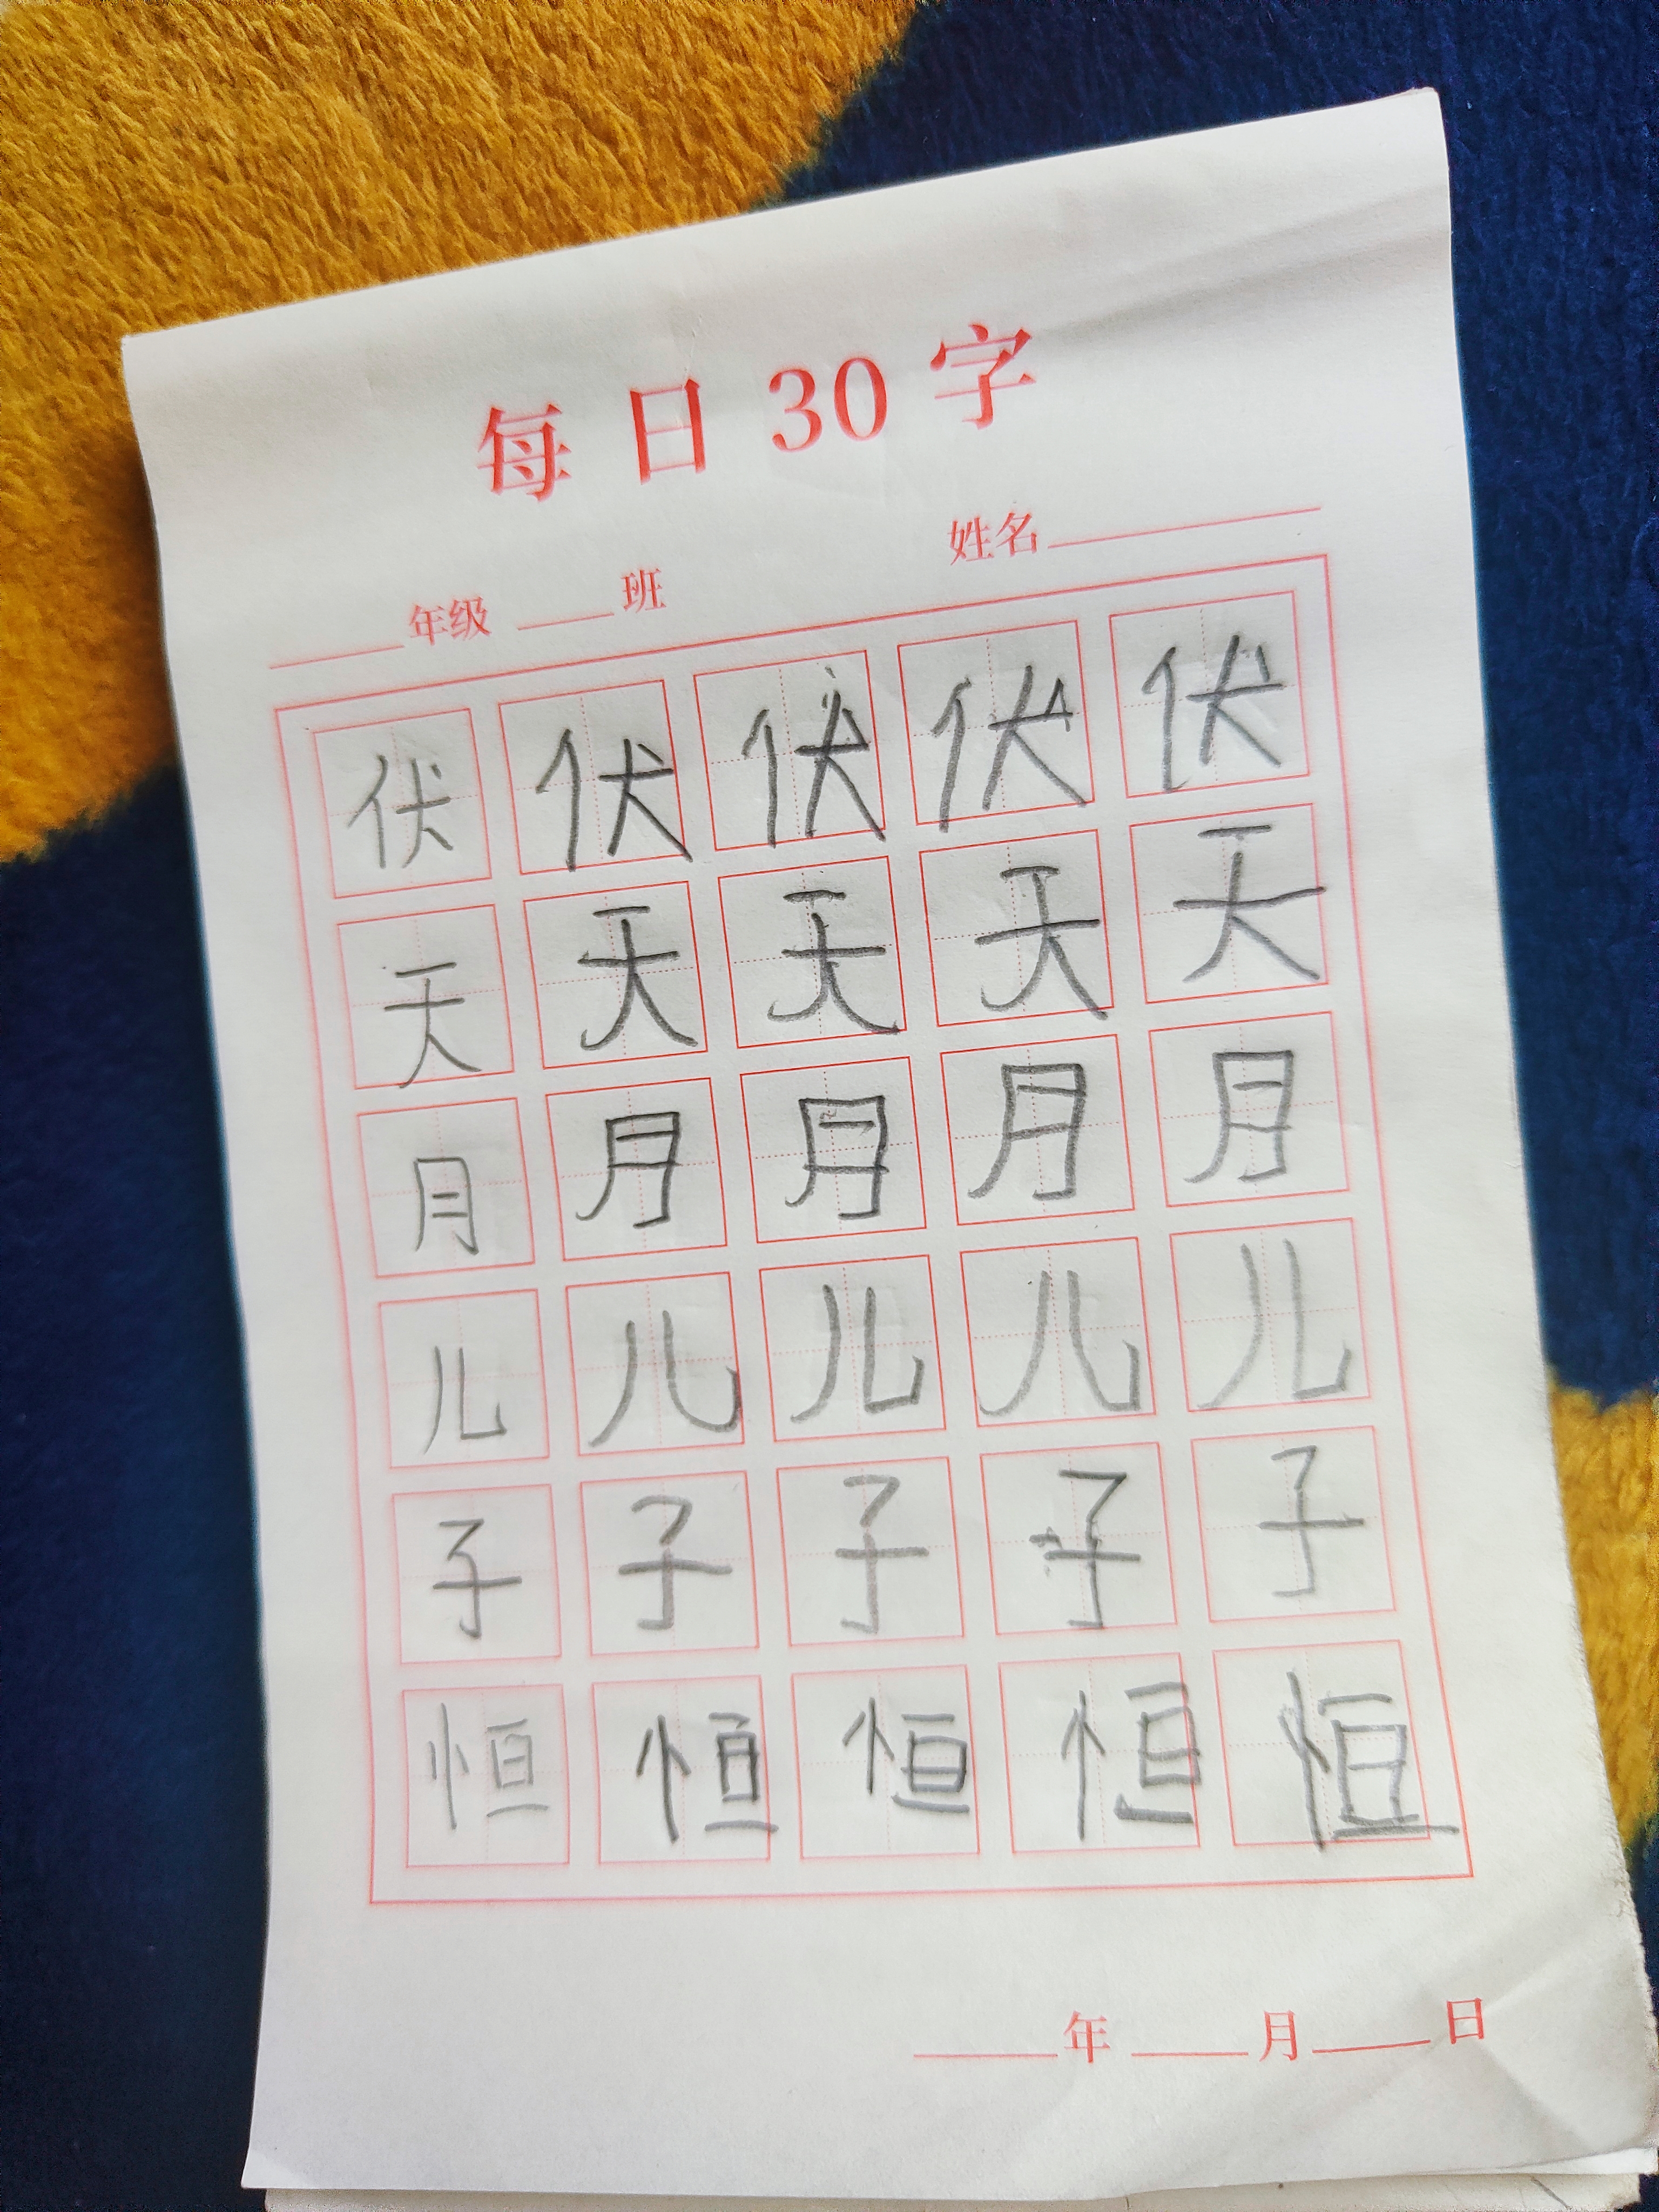 每日30字
____年级 ____班 姓名________
伏 伏 伏 伏 伏
天 天 天 天 天
月 月 月 月 月
儿 儿 儿 儿 儿
子 子 子 子 子
恒 恒 恒 恒 恒
____年____月____日